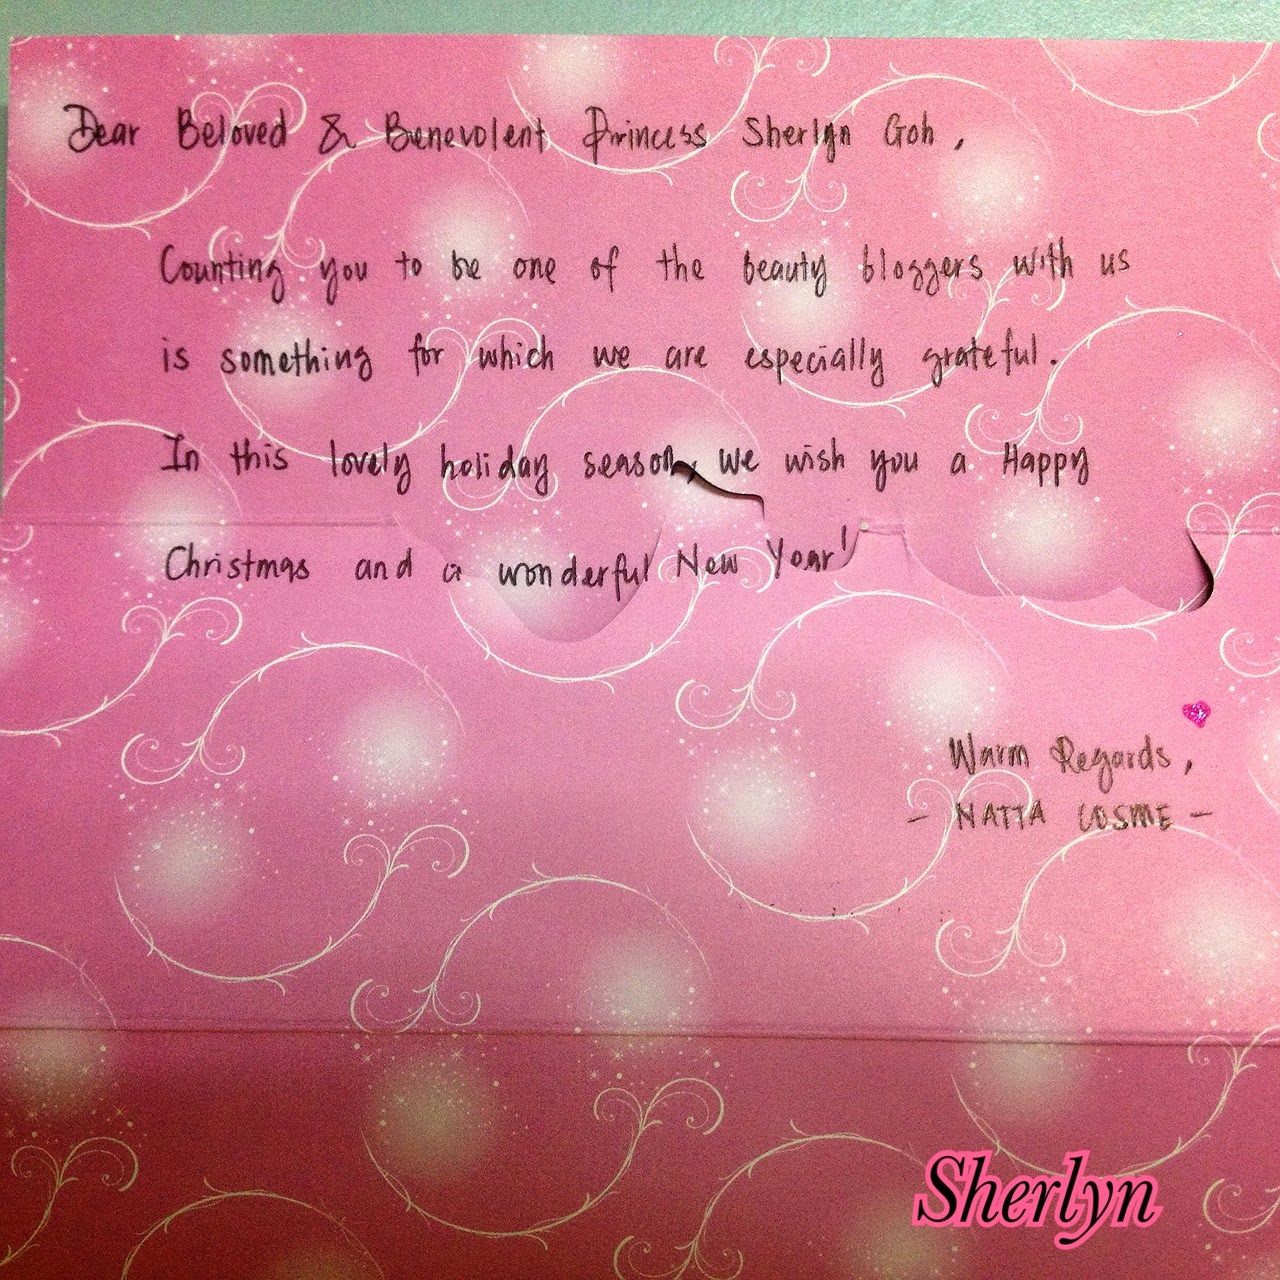 Dear Beloved & Benevolent Princess Sherlyn Goh,
Counting you to be one of the beauty bloggers with us
is something for which we are especially grateful.
In this lovely holiday season, we wish you a Happy
Christmas and a wonderful New Year!
Warm Regards,
- NATTA COSME -
Sherlyn